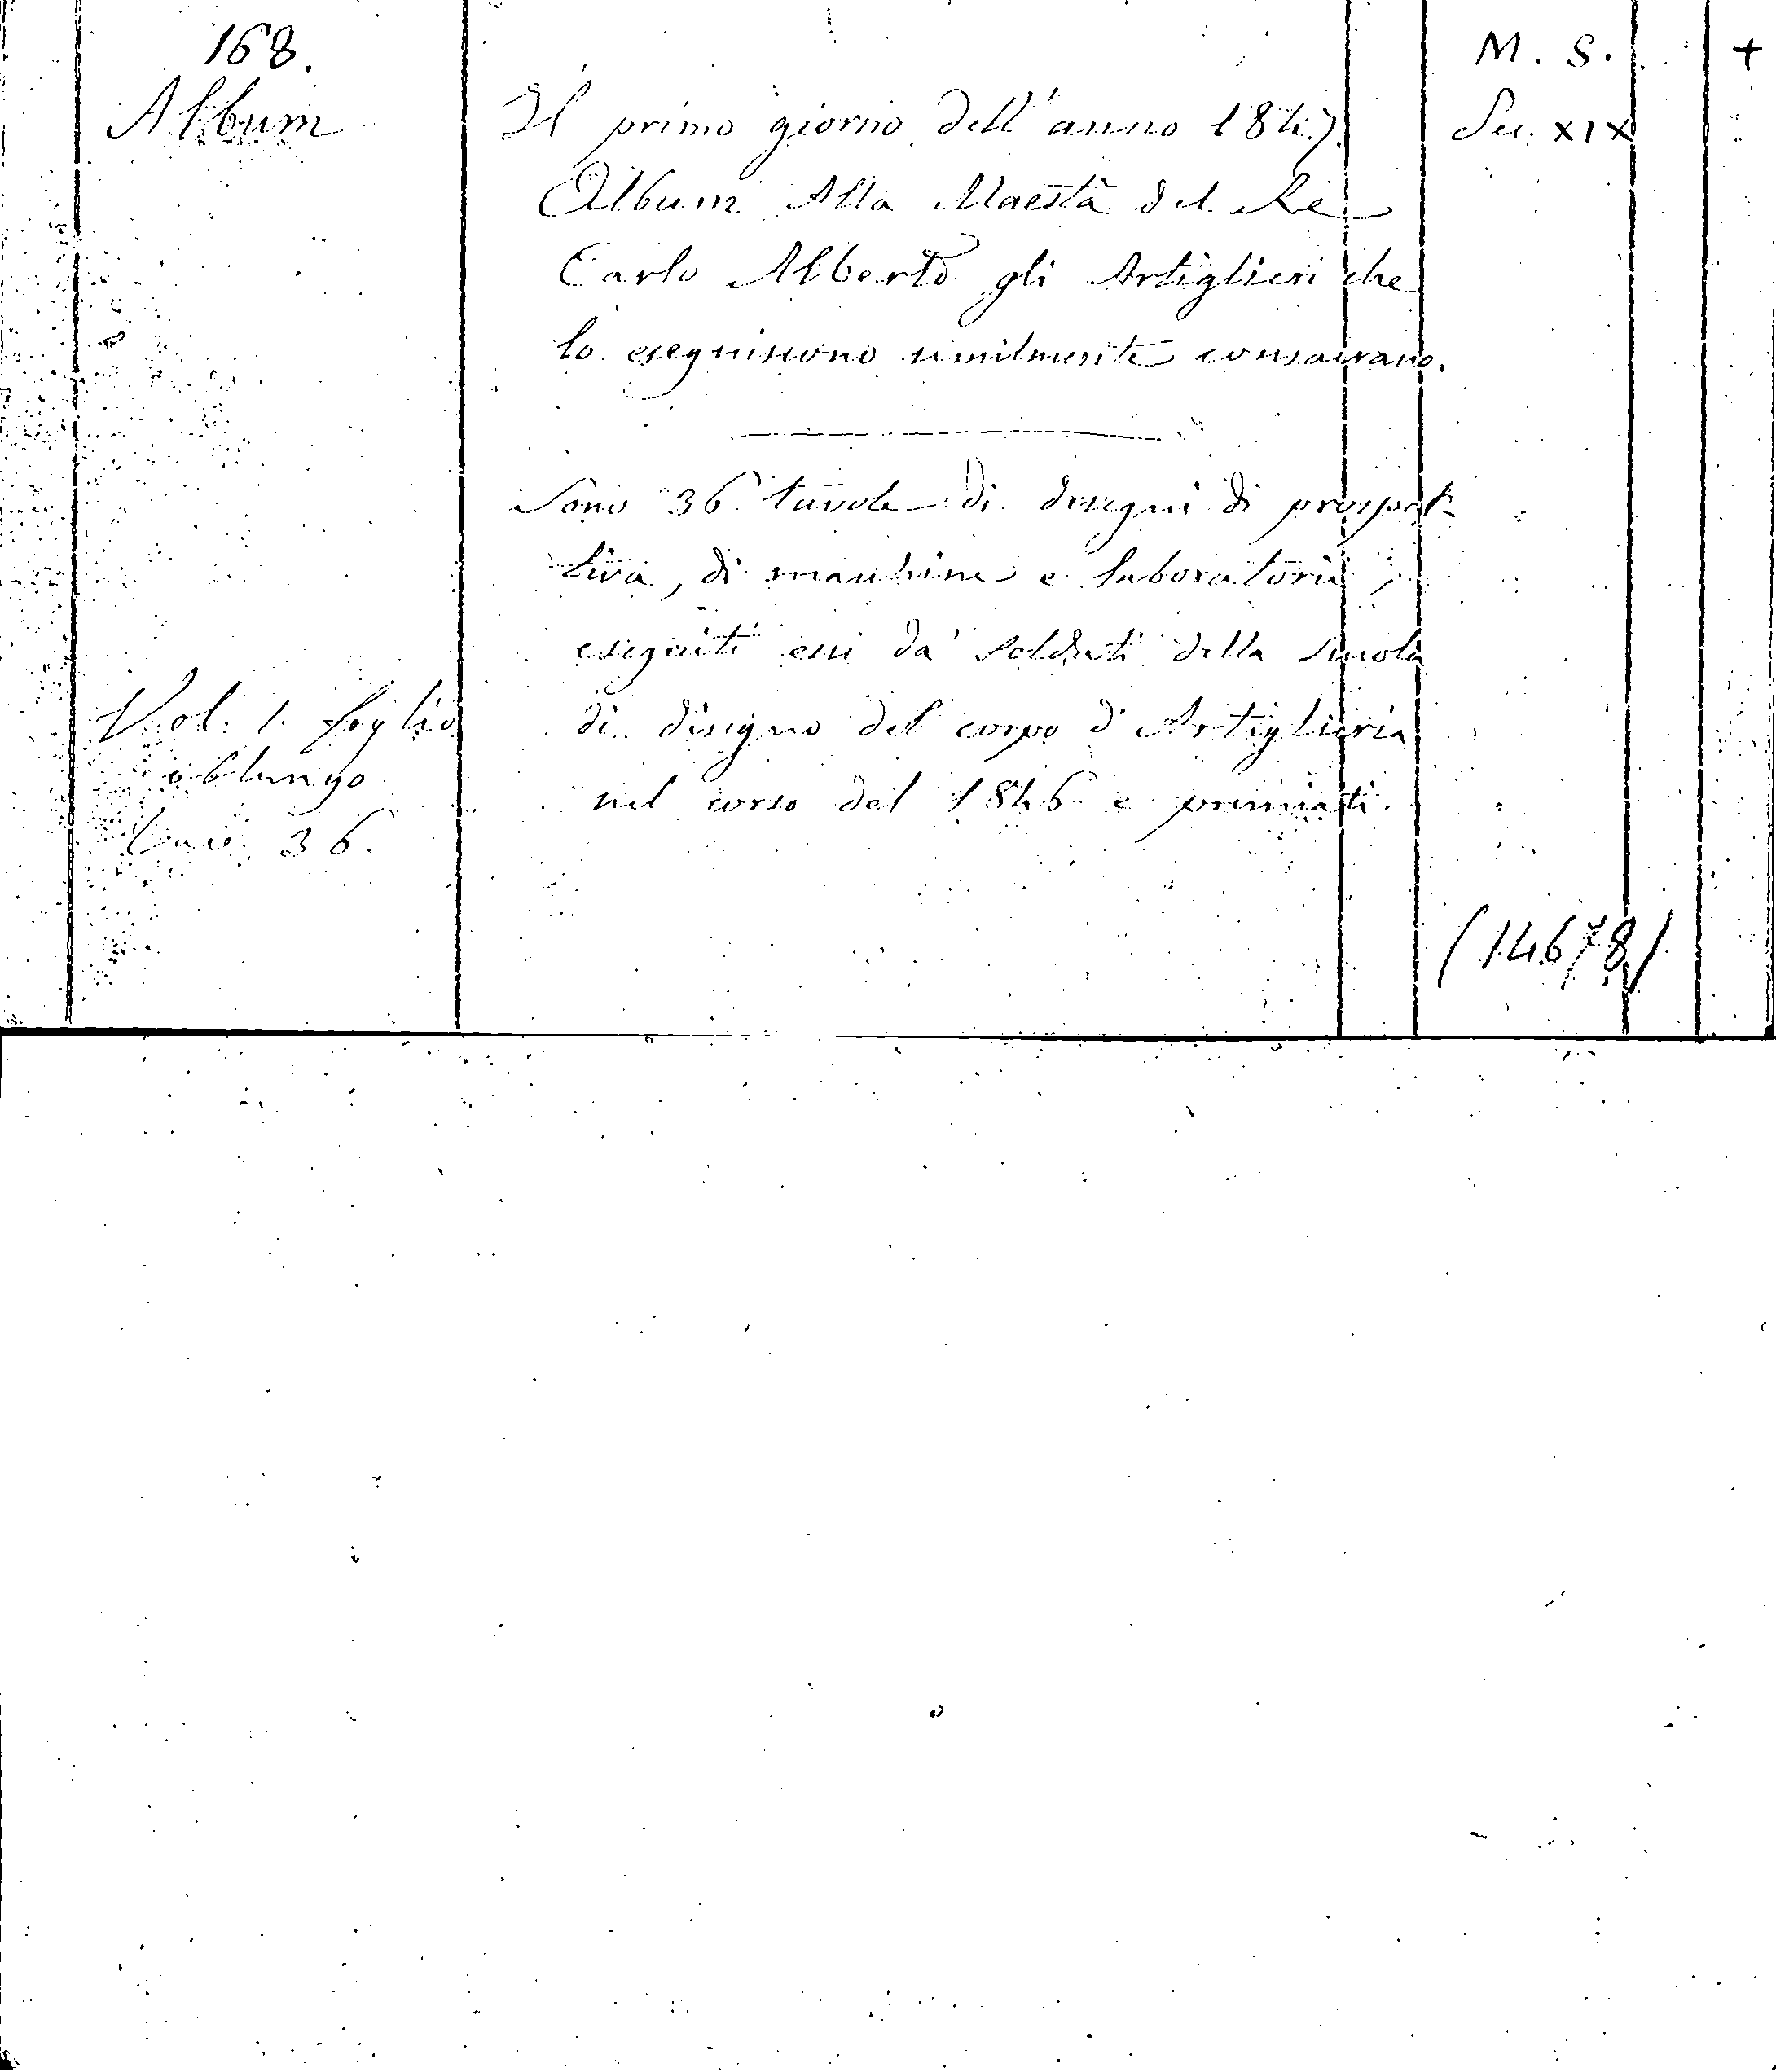 168.
Album
Il primo giorno dell'anno 1847.
Album Alla Maestà del Re
Carlo Alberto gli Artiglieri che
lo eseguiscono umilmente consacrano.
Sono 36 tavole di disegni di prospet-
tiva, di macchine e laboratorii,
eseguiti essi da' Soldati della Scuola
di disegno del corpo d'Artiglieria
nel corso del 1846 e premiati.
Vol. 1. foglio
oblungo
36.
M. S.
Sec. XIX
+
(14678)